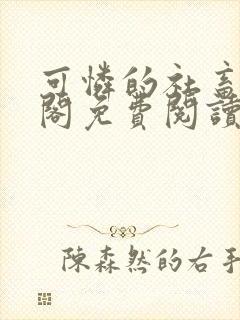 可憐的社畜
閣免費閱讀
陳森然的右手